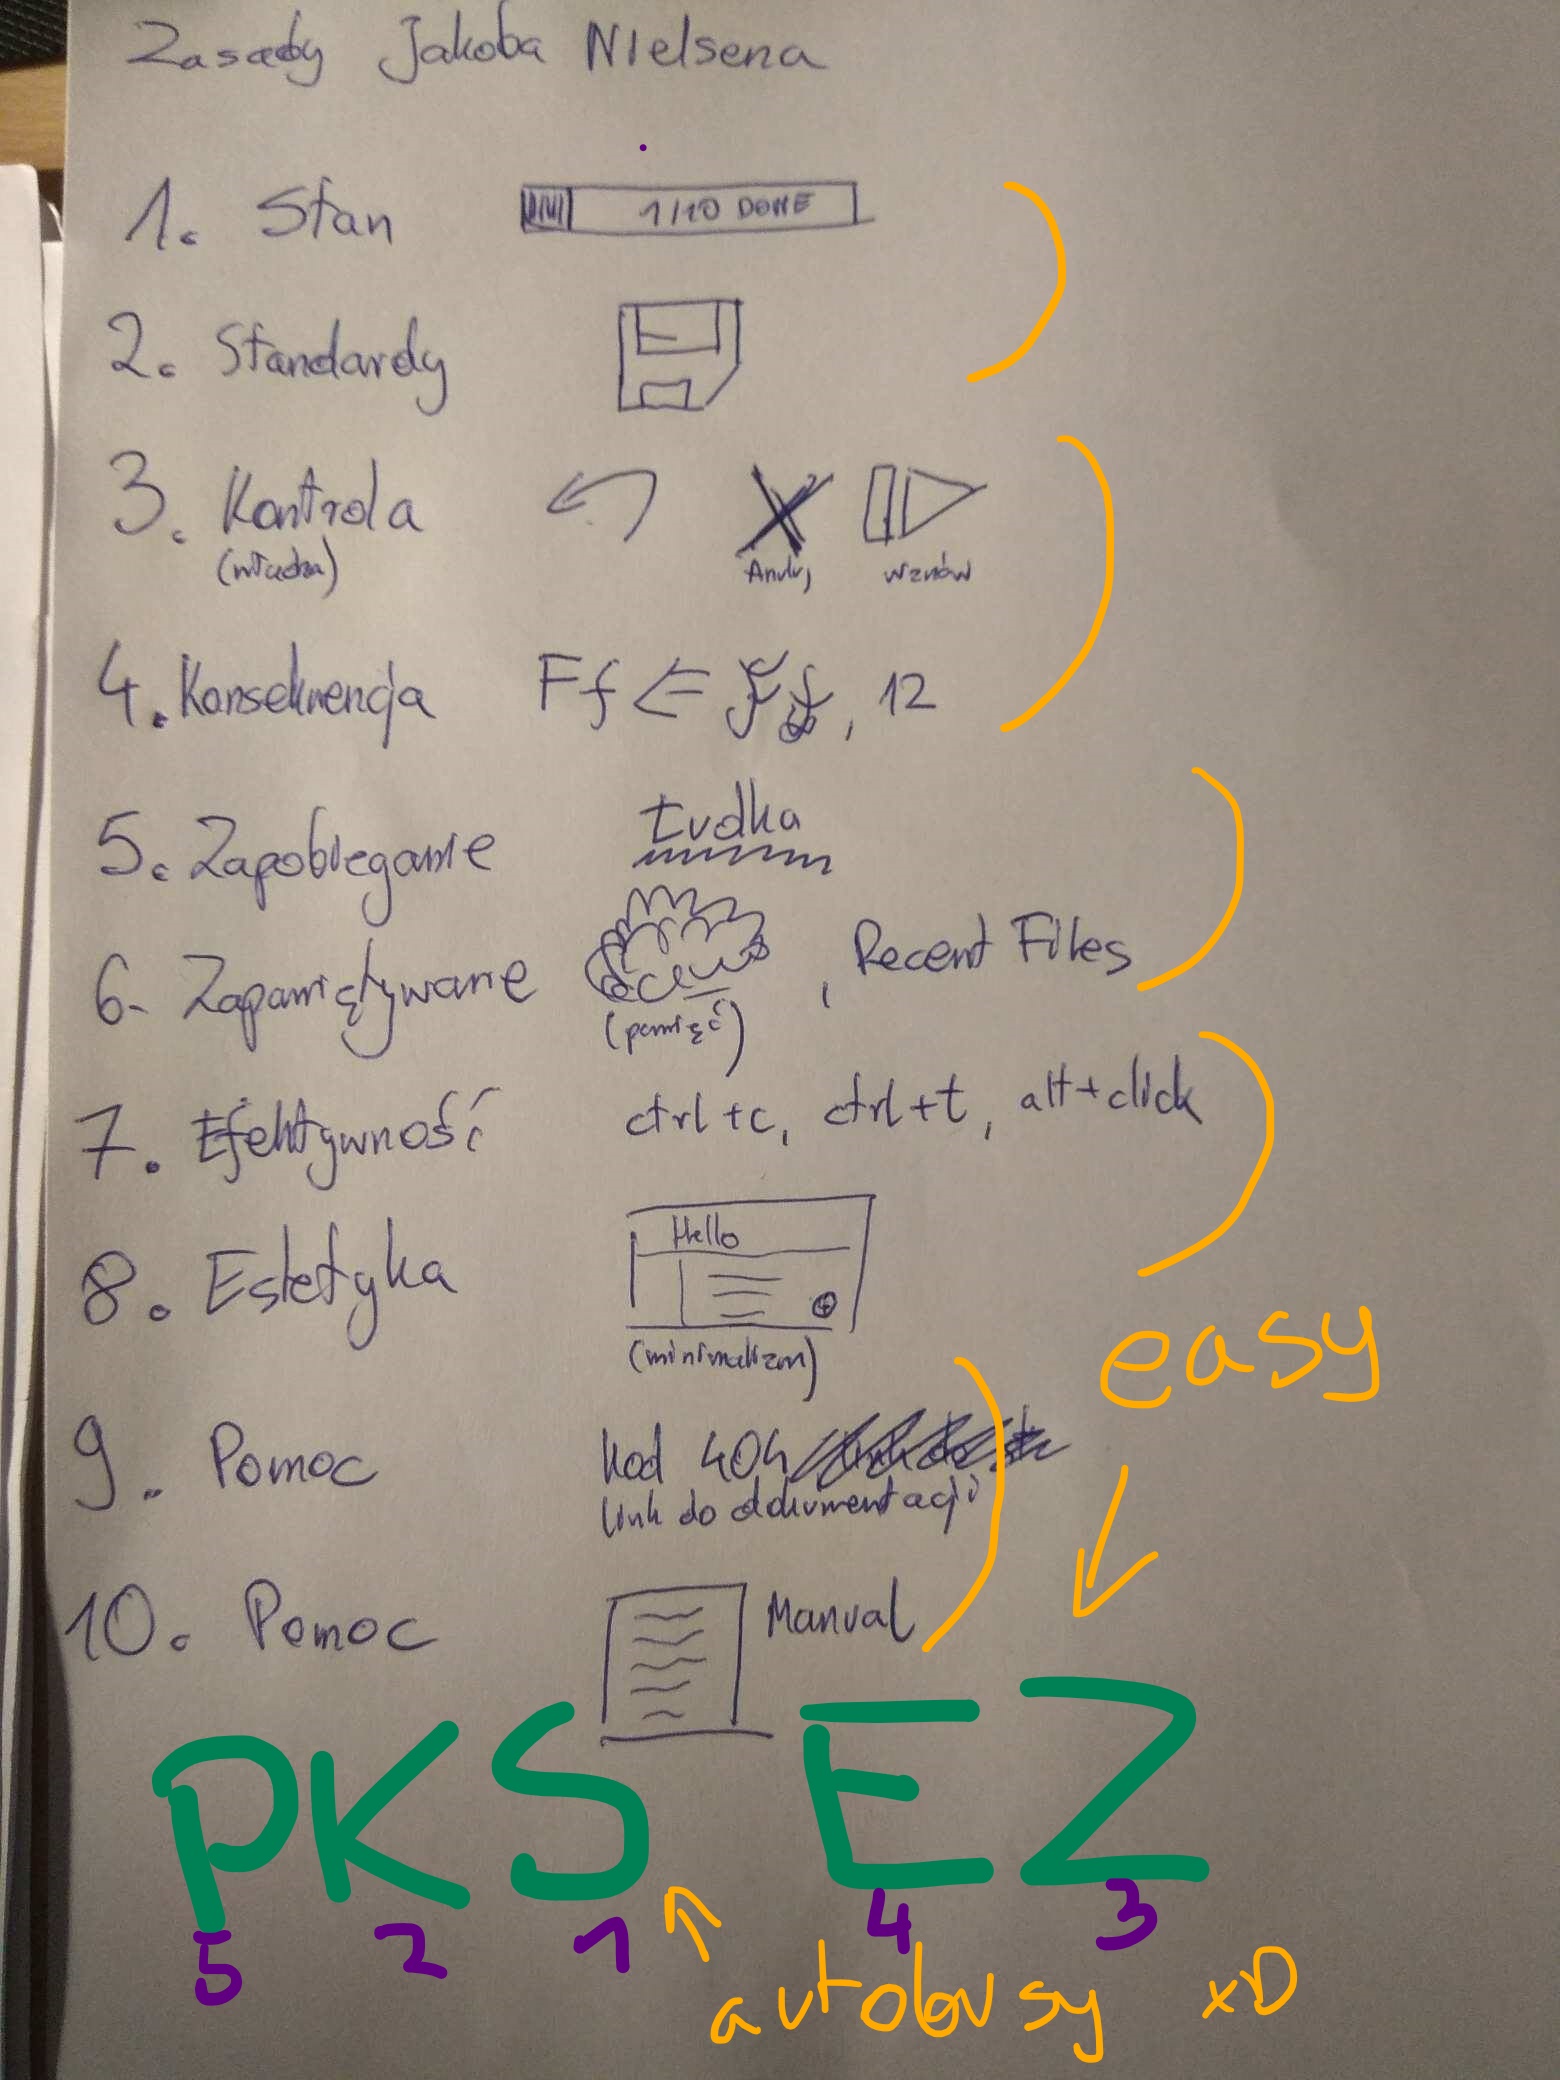 Zasady Jakoba Nielsena
1. Stan 1/10 DONE
2. Standardy
3. Kontrola
(władza) Anuluj Wznów
4. Konsekwencja Ff ⇐ Ff, 12
5. Zapobieganie Łudka
6. Zapamiętywanie , Recent Files
(pamięć)
7. Efektywność ctrl+c, ctrl+t, alt+click
8. Estetyka Hello
(minimalizm)
easy
9. Pomoc kod 404
link do dokumentacji
10. Pomoc Manual
PKS EZ
5 2 1 4 3
autobusy xD